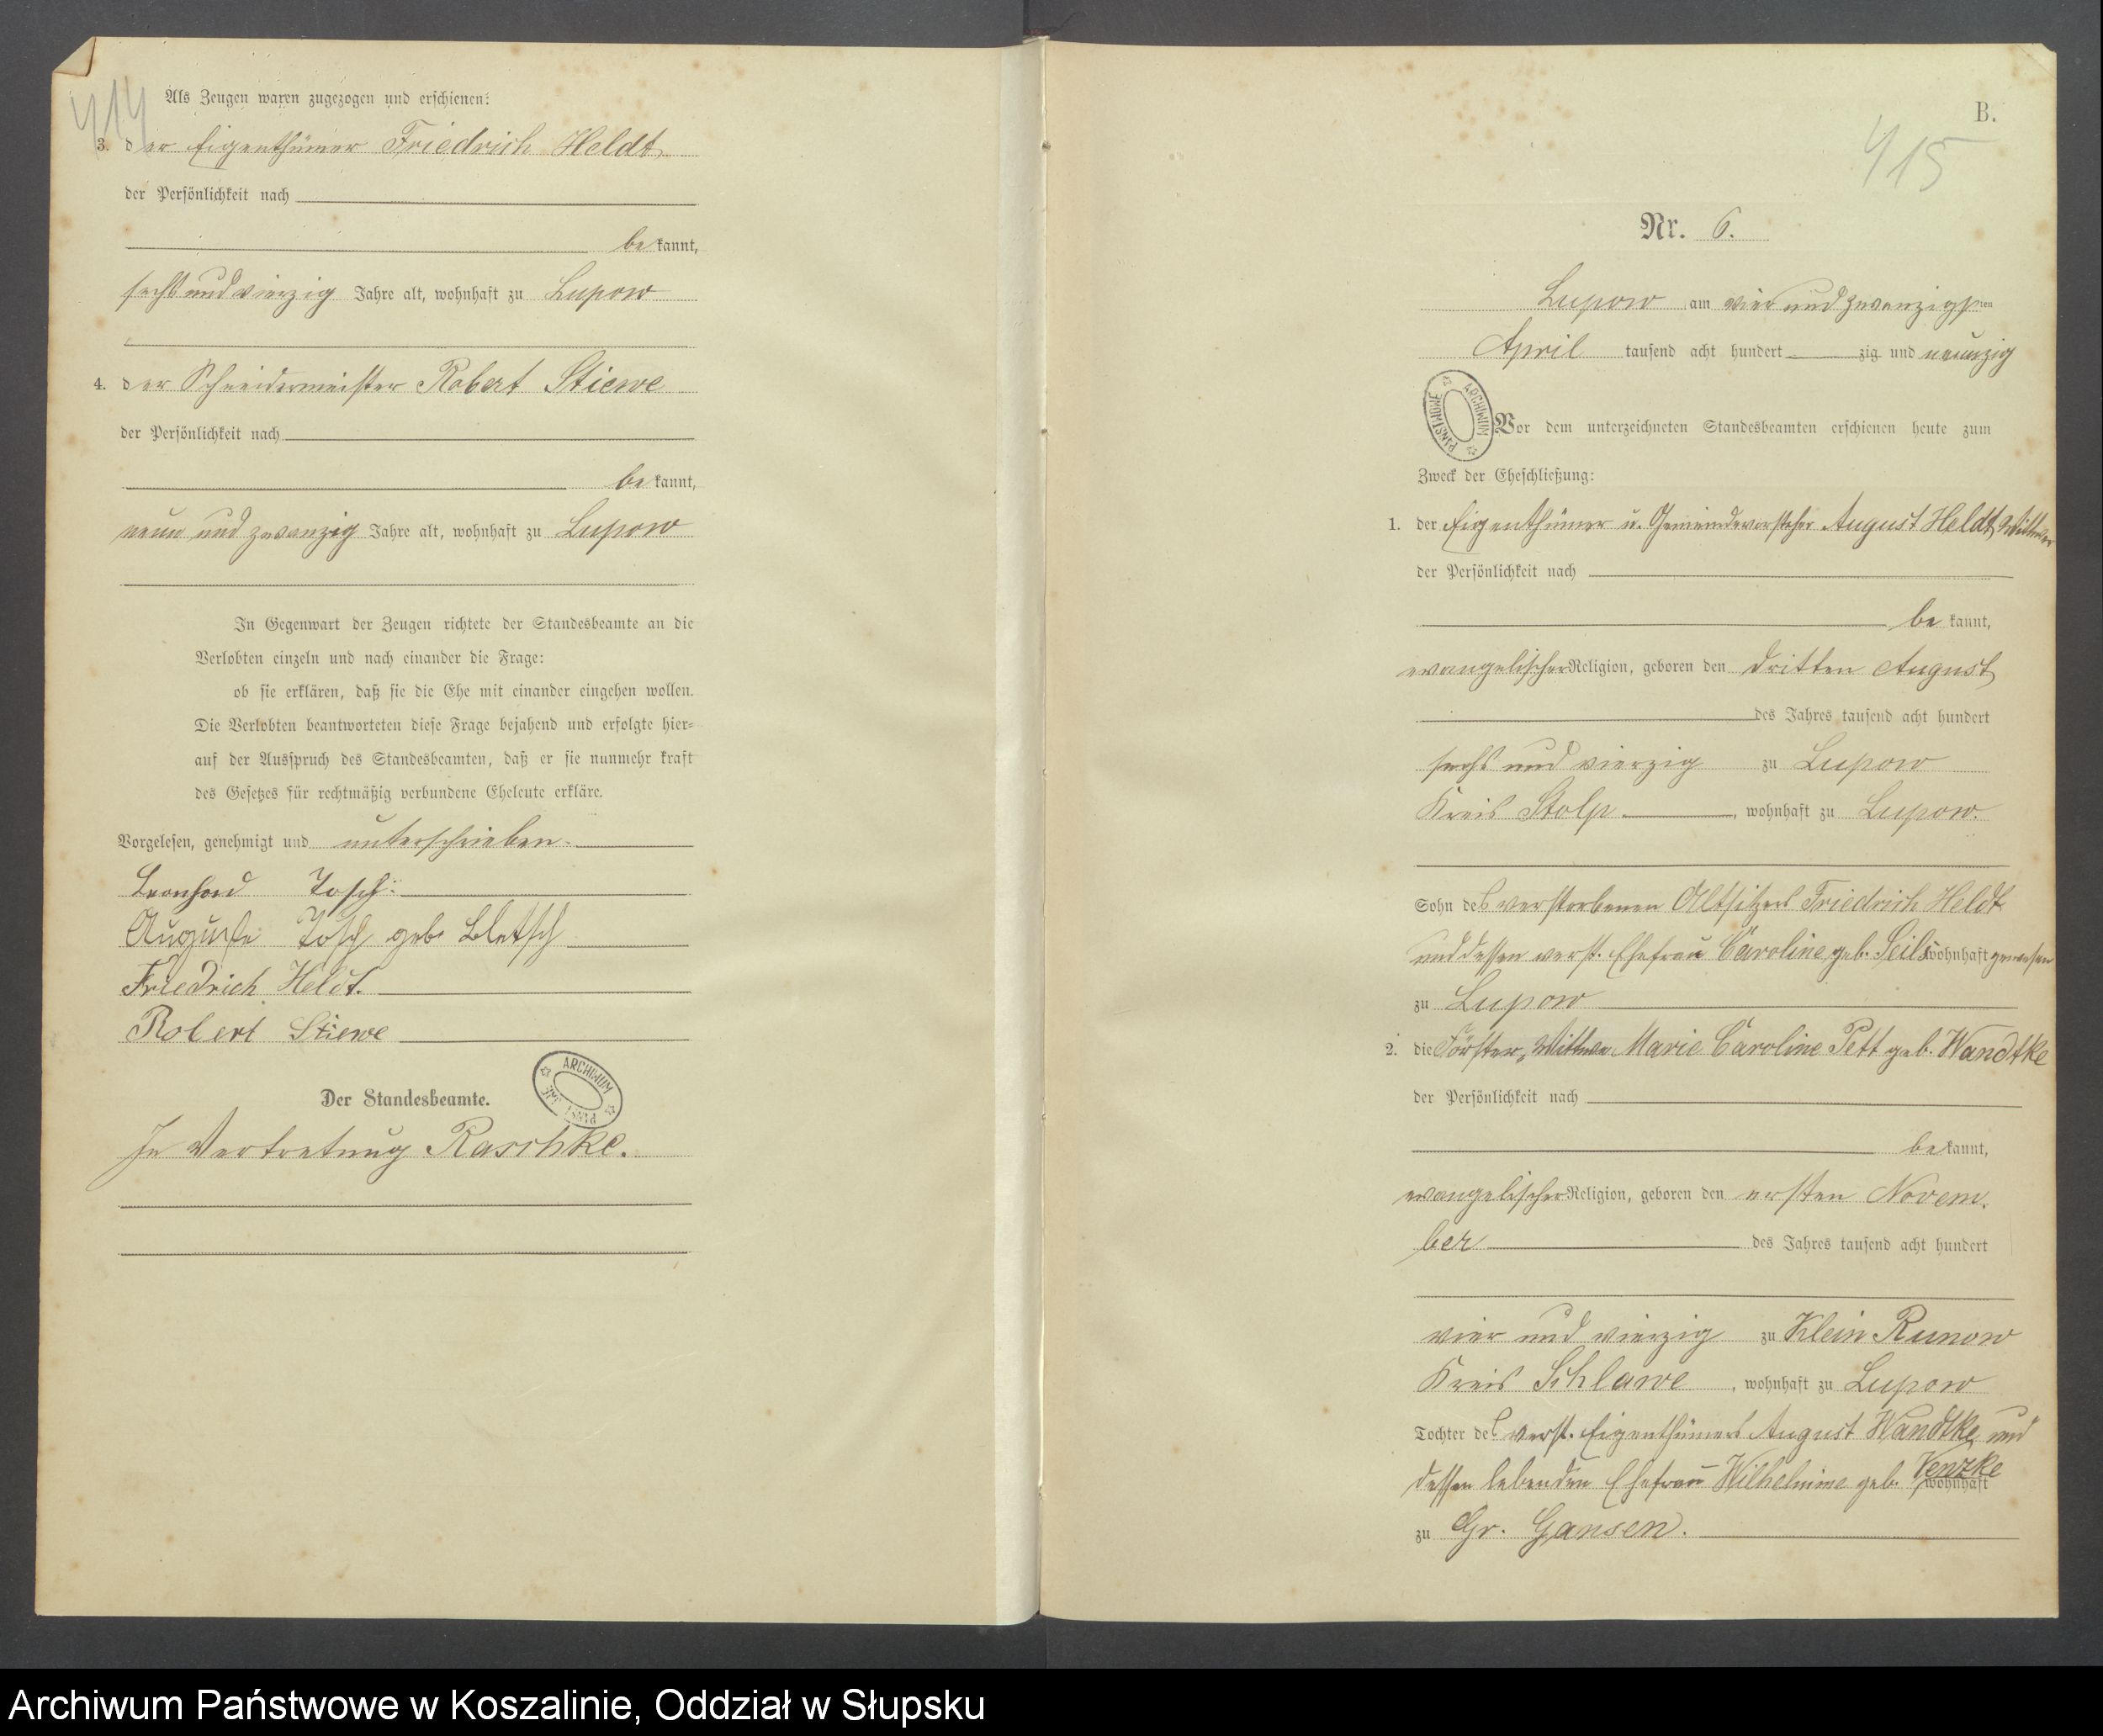 414
Als Zeugen waren zugezogen und erschienen:
3. der Eigenthümer Friedrich Heldt
der Persönlichkeit nach
bekannt,
sechs und vierzig Jahre alt, wohnhaft zu Lupow
4. der Schneidermeister Robert Stiewe
der Persönlichkeit nach
bekannt,
neun und zwanzig Jahre alt, wohnhaft zu Lupow
In Gegenwart der Zeugen richtete der Standesbeamte an die
Verlobten einzeln und nach einander die Frage:
ob sie erklären, daß sie die Ehe mit einander eingehen wollen.
Die Verlobten beantworteten diese Frage bejahend und erfolgte hier-
auf der Ausspruch des Standesbeamten, daß er sie nunmehr kraft
des Gesetzes für rechtmäßig verbundene Eheleute erkläre.
Vorgelesen, genehmigt und unterschrieben.
Leonhard Tosch
Auguste Tosch geb. Bletsch
Friedrich Heldt.
Robert Stiewe
Der Standesbeamte.
ARCHIWUM
In Vertretung Raschke.
B.
415
Nr. 6.
Lupow am vier und zwanzigsten
April tausend acht hundert zig und neunzig
ARCHIWUM PAŃSTWOWE
Vor dem unterzeichneten Standesbeamten erschienen heute zum
Zweck der Eheschließung:
1. der Eigenthümer u. Gemeindevorsteher August Heldt, Wittwer
der Persönlichkeit nach
bekannt,
evangelischer Religion, geboren den dritten August
des Jahres tausend acht hundert
sechs und vierzig zu Lupow
Kreis Stolp, wohnhaft zu Lupow.
Sohn des verstorbenen Altsitzers Friedrich Heldt
und dessen verst. Ehefrau Caroline geb. Seils wohnhaft gewesen
zu Lupow
2. die Förster, Wittwe Marie Caroline Pett geb. Wandtke
der Persönlichkeit nach
bekannt,
evangelischer Religion, geboren den ersten Novem-
ber des Jahres tausend acht hundert
vier und vierzig zu Klein Runow
Kreis Schlawe, wohnhaft zu Lupow
Tochter des verst. Eigenthümers August Wandtke und
dessen lebenden Ehefrau Wilhelmine geb. Venzke wohnhaft
zu Gr. Gansen.
Archiwum Państwowe w Koszalinie, Oddział w Słupsku